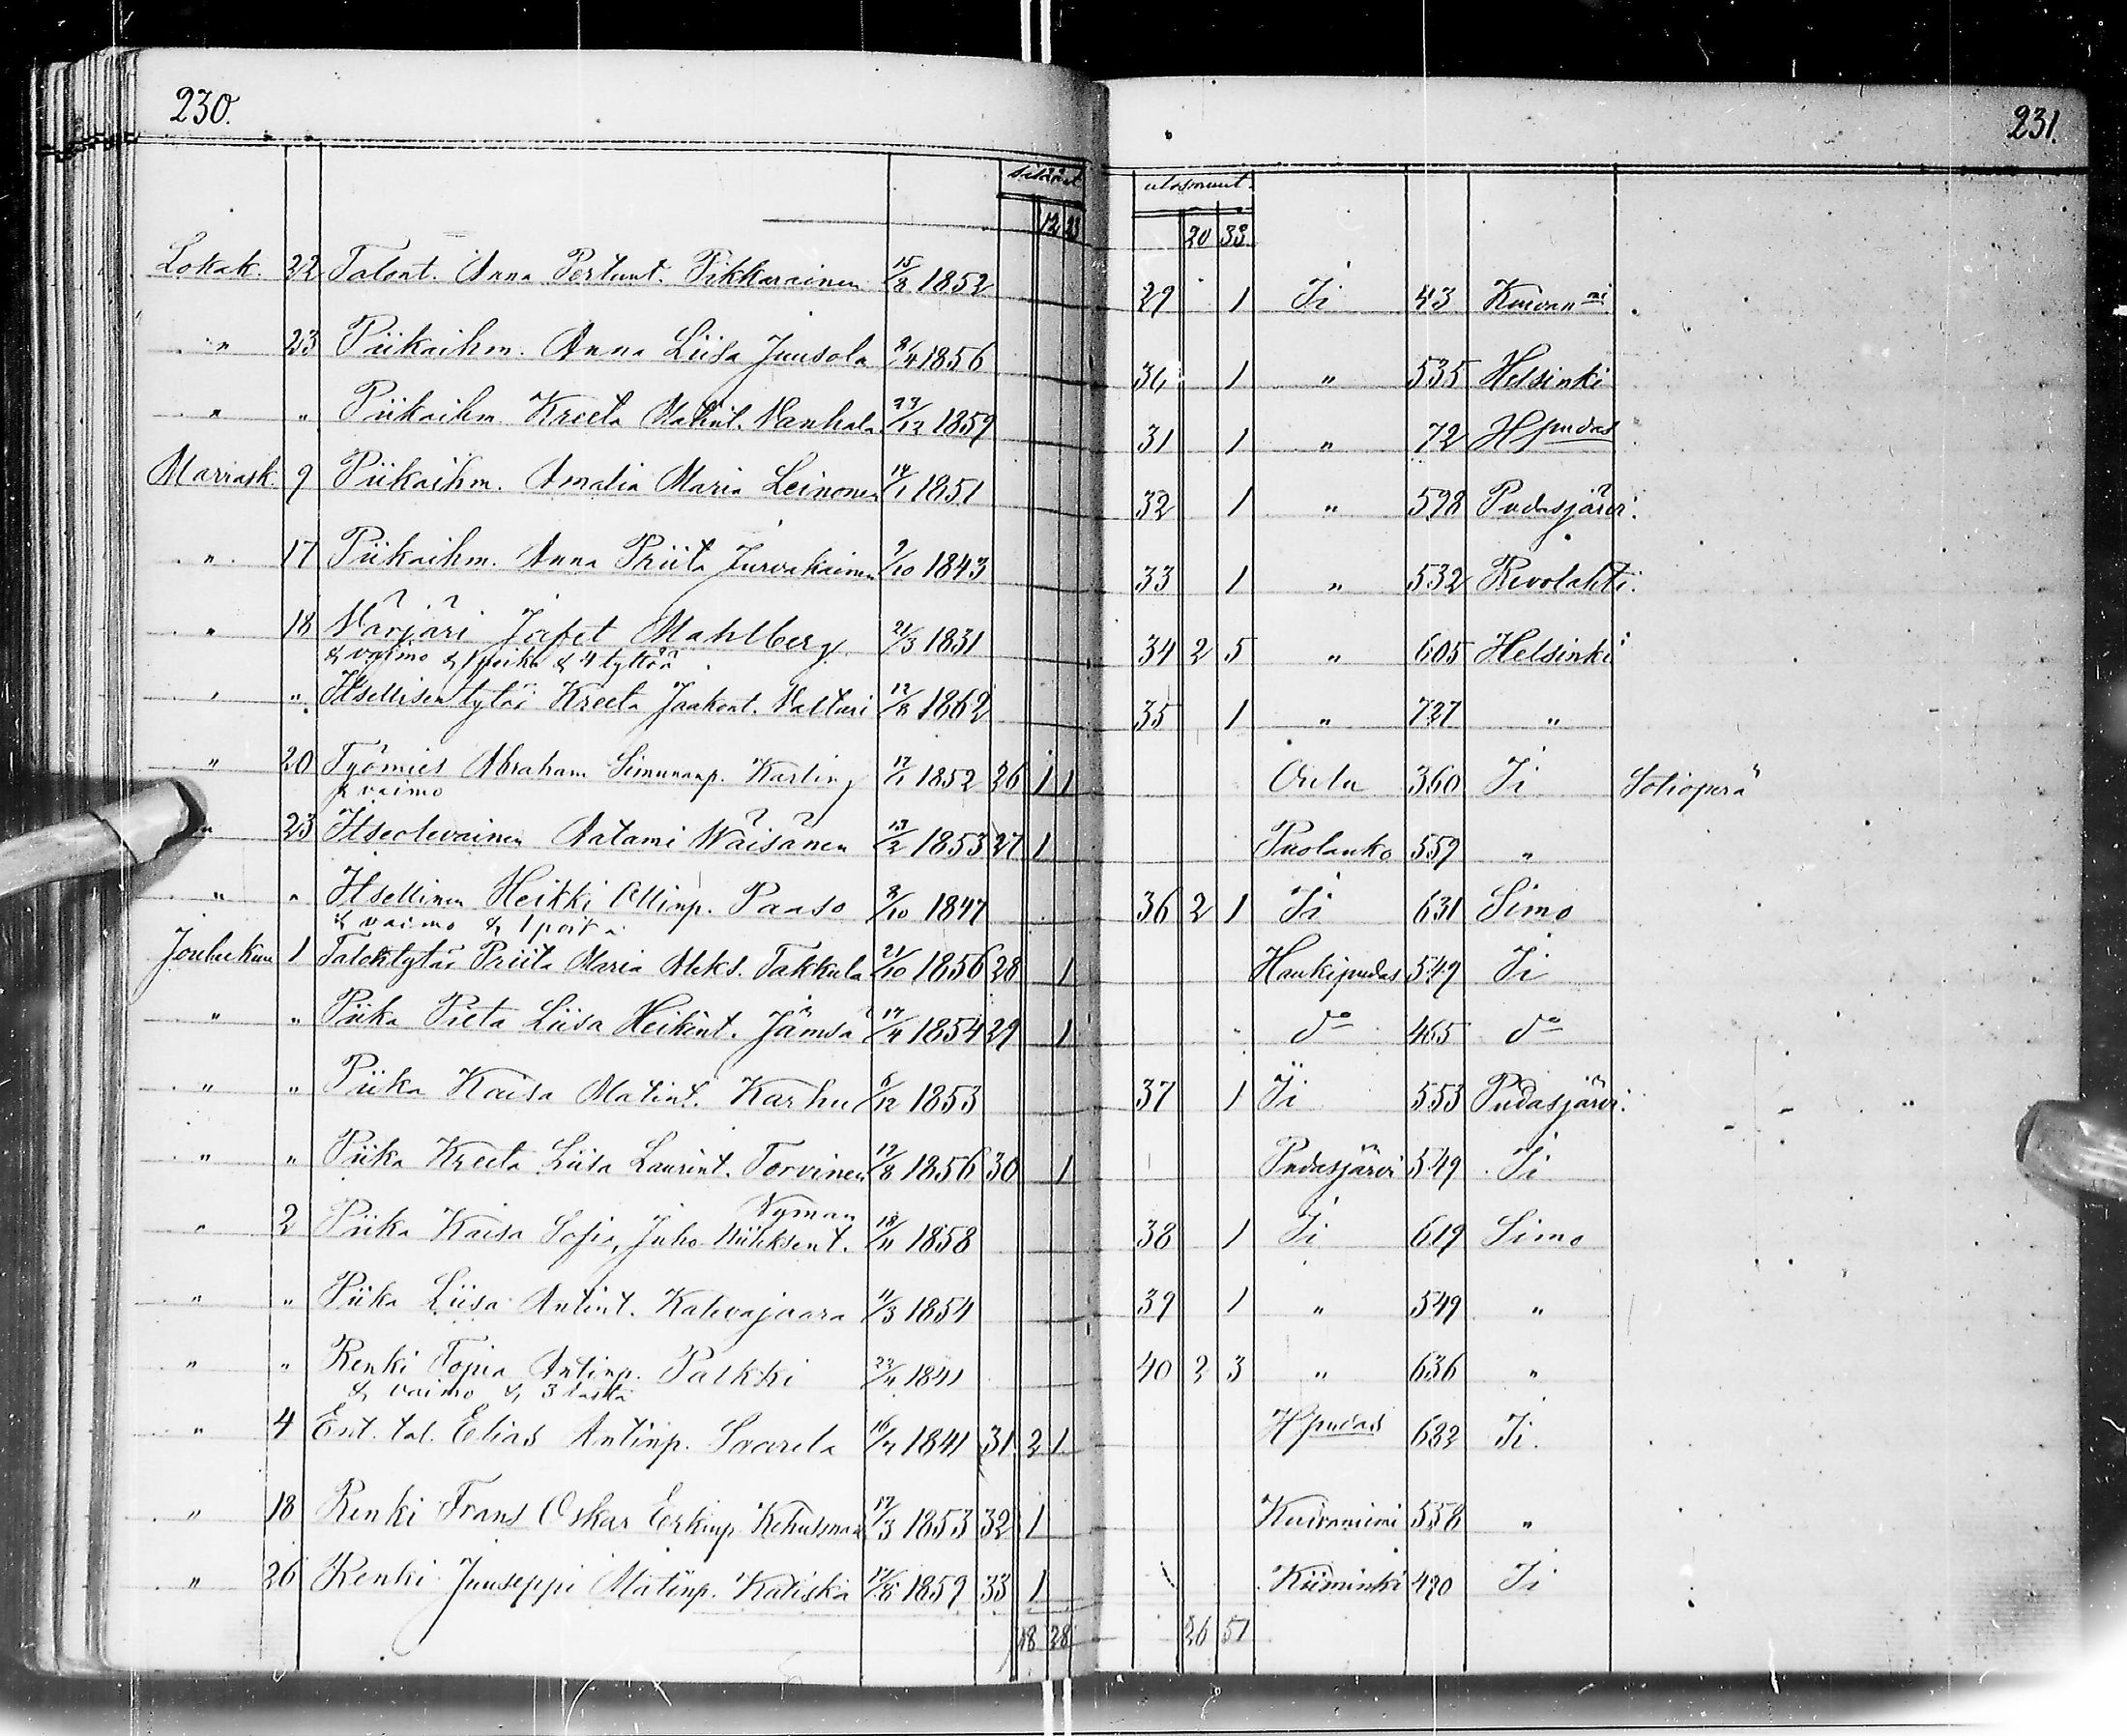 230.
231.
sisään
ulosmuut.
12 23
20 33
Lokak. 22 Talont. Anna Pertunt. Pikkarainen 15/8 1852 29 1 Ii 43 Kuivan ni
" 23 Piikaihm. Anna Liisa Juusola 8/4 1856 30 1 " 535 Helsinki
" " Piikaihm. Kreeta Matint. Vanhala 23/12 1859 31 1 " 72 Hpudas
Marrask. 9 Piikaihm. Amalia Maria Leinonen 14/1 1851 32 1 " 598 Pudasjärvi.
" 17 Piikaihm. Anna Priita Jurvakainen 9/10 1843 33 1 " 532 Revolahti.
" 18 Värjäri Jafet Mahlberg 21/3 1831 34 2 5 " 605 Helsinki
& vaimo & 1 poika & 4 tyttöä
" " Itsellisen tytär Kreeta Jaakont. Valturi 12/8 1862 35 1 " 727 "
" 20 Työmies Abraham Simunanp. Karling 17/1 1852 26 1 1 Oulu 360 Ii
& vaimo
" 23 Itseolevainen Aatami Wäisänen 13/2 1853 27 1 Puolanko 559 "
" " Itsellinen Heikki Ollinp. Paaso 8/10 1847 36 2 1 Ii 631 Simo
& vaimo & 1 poika
Joulukuu 1 Talontytär Priita Maria Aleks. Takkula 21/10 1856 28 1 Haukipudas 549 Ii
" " Piika Pieta Liisa Heikint. Jämsä 17/4 1854 29 1 do 465 do
" " Piika Kaisa Matint. Karhu 6/12 1853 37 1 Ii 553 Pudasjärvi.
" " Piika Kreeta Liisa Laurint. Torvinen 19/8 1856 30 1 Pudasjärvi 549 Ii
Nyman
" 2 Piika Kaisa Sofia, Juho 18/11 1858 38 1 Ii 619 Simo
" " Piika Liisa Antint. Kahvajaara 11/3 1854 39 1 " 549 "
" " Renki Topia Antinp. Palkki 22/11 1841 40 2 3 " 636 "
& vaimo & 3 lasta
" 4 Ent. tal. Elias Antinp. Saarela 16/7 1841 31 2 1 Hpudas 632 Ii.
" 18 Renki Frans Oskar Eerkinp. Kehusmaa 17/3 1853 32 1 Kuivaniemi 558 "
" 26 Renki Juuseppi Matinp. Katiska 17/8 1859 33 1 Kiiminki 490 Ii
18 28
26 51